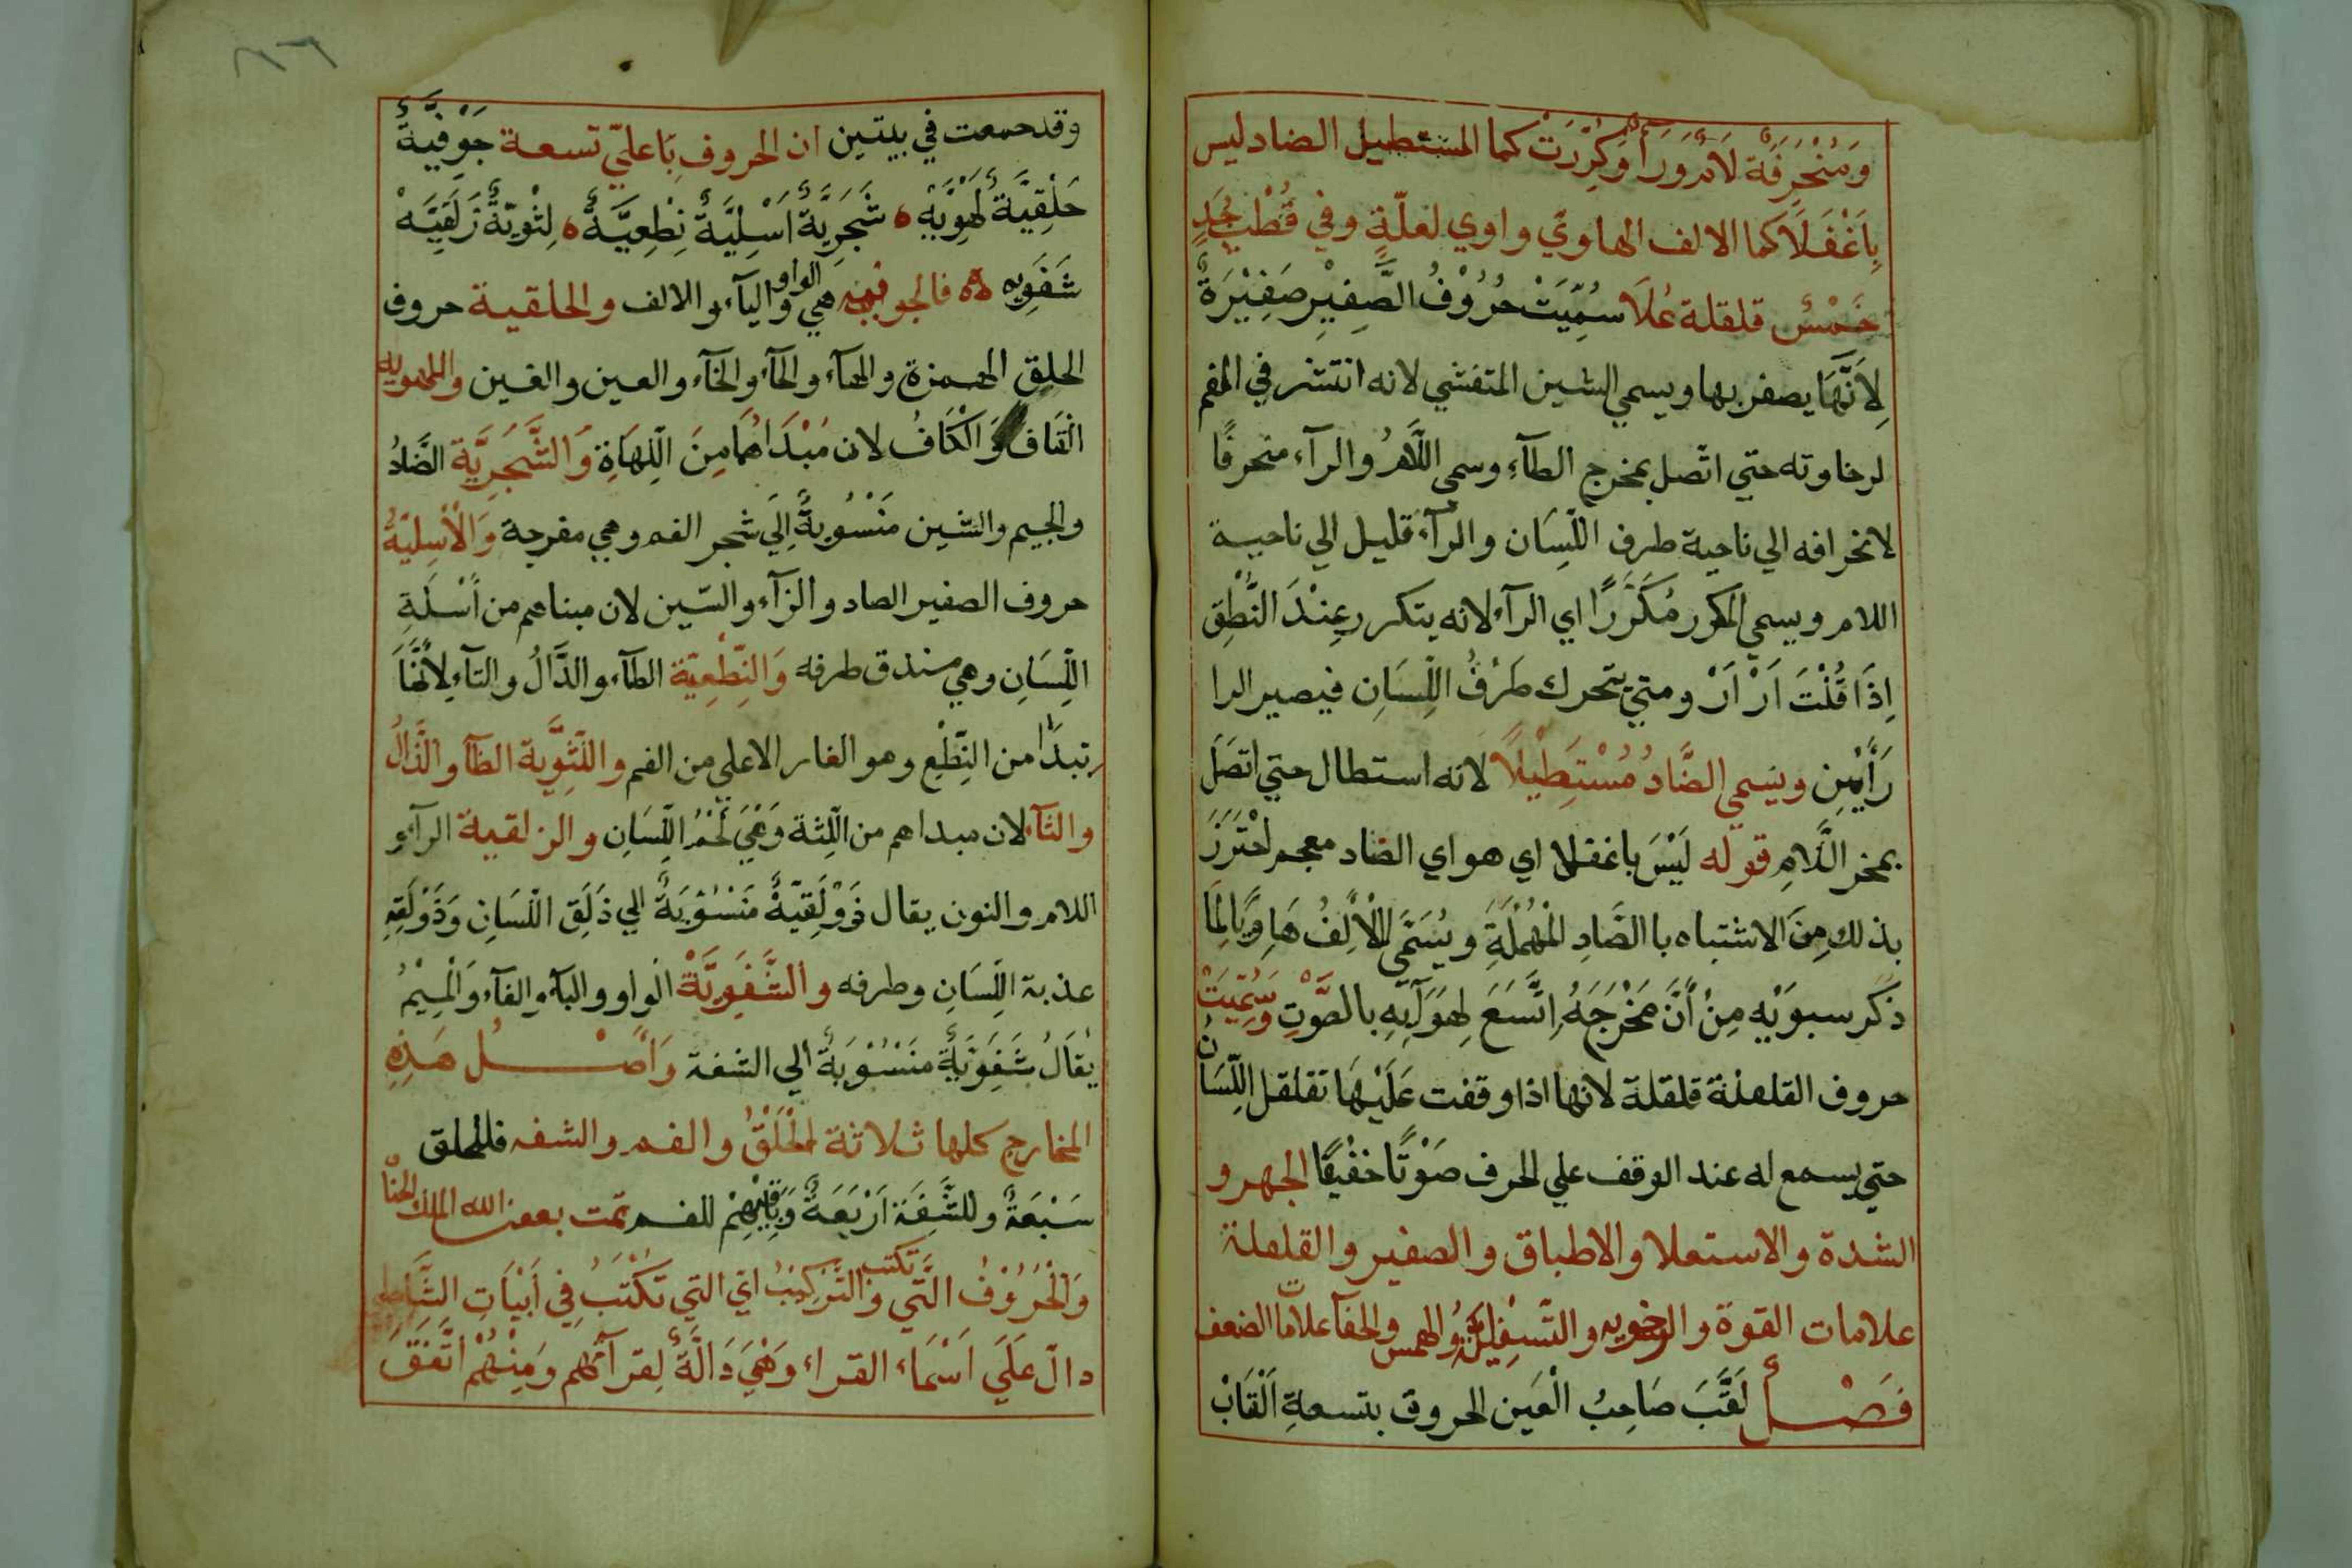 وَمُنْحَرِفَة لَامٌ وَرَأٌ وَكُرِّرَتْ كما المستطيل الضاد ليس
بِأَغْفَلَا كما الالف الهاوي واوي لعلّةٍ وفي قُطْبُ جَدٍ
خَمْسُ قلقلة عُلَا سُمِّيَتْ حُرُوْفُ الصَّفِيْرِ صَفِيْرَةٌ
لِاَنَّهَا يصفر بها ويسمي الشين المتفشي لانه انتشر في الفم
لرخاوته حتي اتّصل بمخرج الطآء وسمي اللَّامُ والرآء منحرفًا
لانحرافه الي ناحية طرف اللِّسَان والرآء قليل الي ناحية
اللام ويسمي المكرر مُكَرَّرًا اي الرآء لانه يتكرر عِنْدَ النُّطْقِ
اِذَا قُلْتَ اَرْ اَرْ ومتي يتحرك طَرْفُ اللِّسَانِ فيصير الرا
رَأَيْنِ ويسمي الضَّادُ مُسْتَطِيْلاً لانه استطال حتي اتصَلَ
بمخر اللَّامِ قوله لَيْسَ باغفلا اي هو اي الضاد معجم احْتَرَزَ
بذلك مِنَ الاشتباه با الضَّادِ الْمُهْمَلَةِ ويُسَمَّي الْاَلِفُ هَاوِيًا لِمَا
ذكر سبوَيْهِ مِنْ أَنَّ مَخْرَجَهُ اِتَّسَعَ لِهَوَآئِهِ بالصَّوْتِ وَسُمِّيَتْ
حروف القلقلة قلقلة لانها اذا وقفت عَلَيْهَا تقلقل اللِّسَانُ
حتي يسمع له عند الوقف علي الحرف صَوْتًا خفيفًا الجهر و
الشدة والاستعلا والاطباق والصفير والقلقلة
علامات القوة والرخويه والتسفيلية والهمس والخفآ علامات الضعف
فَصْلٌ لَقَّبَ صَاحِبُ الْعَين الحروف بتسعةِ اَلْقَابْ
وقد جمعت في بيتين ان الحروف بِاعليّ تسعة جَوْفِيَّةٌ
حَلْقِيَّةٌ لَهْوِيَّهْ ه شَجَرِيَّةٌ اَسْلِيَّةٌ نِطْعِيَّةٌ ه لِثْوِيَّةٌ زَلَقِيَّهْ
شَفَوِيه ه فالجوفيه هي الواو واليآء والالف والحلقية حروف
الحلق الهمزة والهآء والحآء والخآء والعين والغين واللهويه
الْقَاف وَالْكَافُ لان مُبْدَاهُمَا مِنَ اللِّهَاةِ وَالشَّجَرِيَّة الضَّادُ
والجيم والشين مَنْسُوبَةٌ اِلَي شجر الفم وهي مفرجة وَالْأَسْلِيّةُ
حروف الصفير الصاد والزآء والسّين لان مبناهم من أَسْلَةِ
اللِّسَانِ وهي مستدق طرفه وَالنِّطْعِيّة الطآء والدَّالُ والتآء لِأَنَّهَا
تبدَأ من النِّطْعِ وهو الغار الاعلي من الفم واللَّثْوِيّة الظآ والذَّالُ
والثآء لان مبداهم من اللِّثة وَهْيَ لَحْمُ اللِّسَانِ والزلقية الرآء و
اللام والنون يقال ذَوْلَقِيّةٌ مَنْسُوْبَةٌ الي ذَلَقِ اللّسَانِ وَذَوْلَقِهِ
عذبة اللِّسَانِ وطرفه والشَّفَوِيَّةْ الواو والبآء والفآء وَالْمِيْمُ
يُقَالُ شَفَوِيَّةٌ مَنْسُوْبَةٌ الي الشفة وَاَصْلُ هَذِهِ
المخارج كلها ثلاثة الْحَلْقُ والفم والشفه فللحلق
سَبْعَةٌ وللشَّفَةِ اَرْبَعَةٌ وَبَاقِيْهِمْ للفم تمت بعون الله الملك الحنان
وَالْحُرُوْفُ الَّتي تكتب والتَّرْكِيْبُ اي التي تُكْتَبُ فِي اَبْيَاتِ الشَّاطبي
دالّ عَلَي اَسْمَاء القراء وَهْيَ دَالَّةٌ لِقرآئهم وَمِنْهُمْ اتَّفَقَ